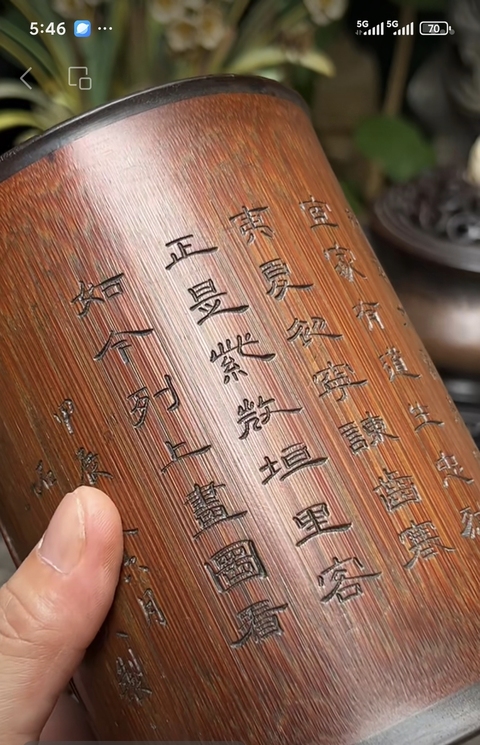 5:46
5G 5G 70
宜家有道生忠
夷夏從寧諫齒寒
正是紫微垣里客
如今列上畫圖看
甲辰 月
石 製